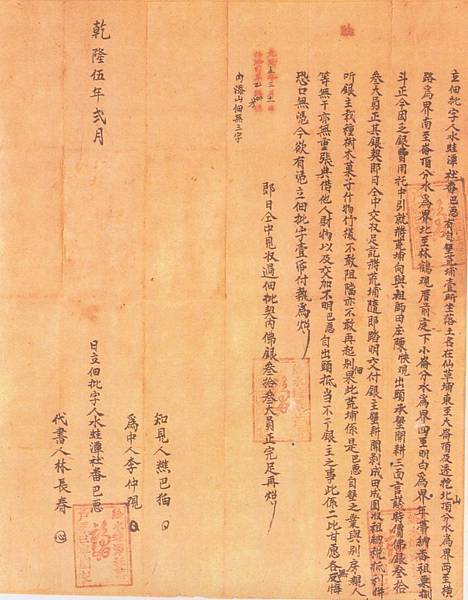 立佃批字人水蛙潭社番巴悉有自墾荒埔壹所坐落土名在仙草埔東至大哥頂及透挖北頂分水為界西至橫
路為界南至崙頂分水為界北至林鶴現厝前庭下小崙分水為界四至明白為界年帶納番租粟捌
斗正今因乏銀費用托中引就將荒埔向與祖師田庄陳快現出頭承墾開耕三面言議時價佛銀叁拾
叁大員正其銀契即日仝中交收足訖將荒埔隨即踏明交付銀主墾耕開剝成田成園收租納稅抵利
听銀主栽種樹木菓子什物伊後不敢阻擋亦不敢再起別佃此荒埔係是巴悉自墾之業與別房親人
等無干亦無重張典借他人財物以及交加不明巴悉自出頭抵当不干銀主之事此係二比甘愿各無反悔
恐口無憑今欲有憑立佃批字壹帋付執為炤
即日仝中見收過佃批契內佛銀叁拾叁大員正完足再炤
內添山佃無三字
知見人
為中人李仲
日立佃批字人水蛙潭社番巴悉
代書人林長春
乾隆伍年弍月